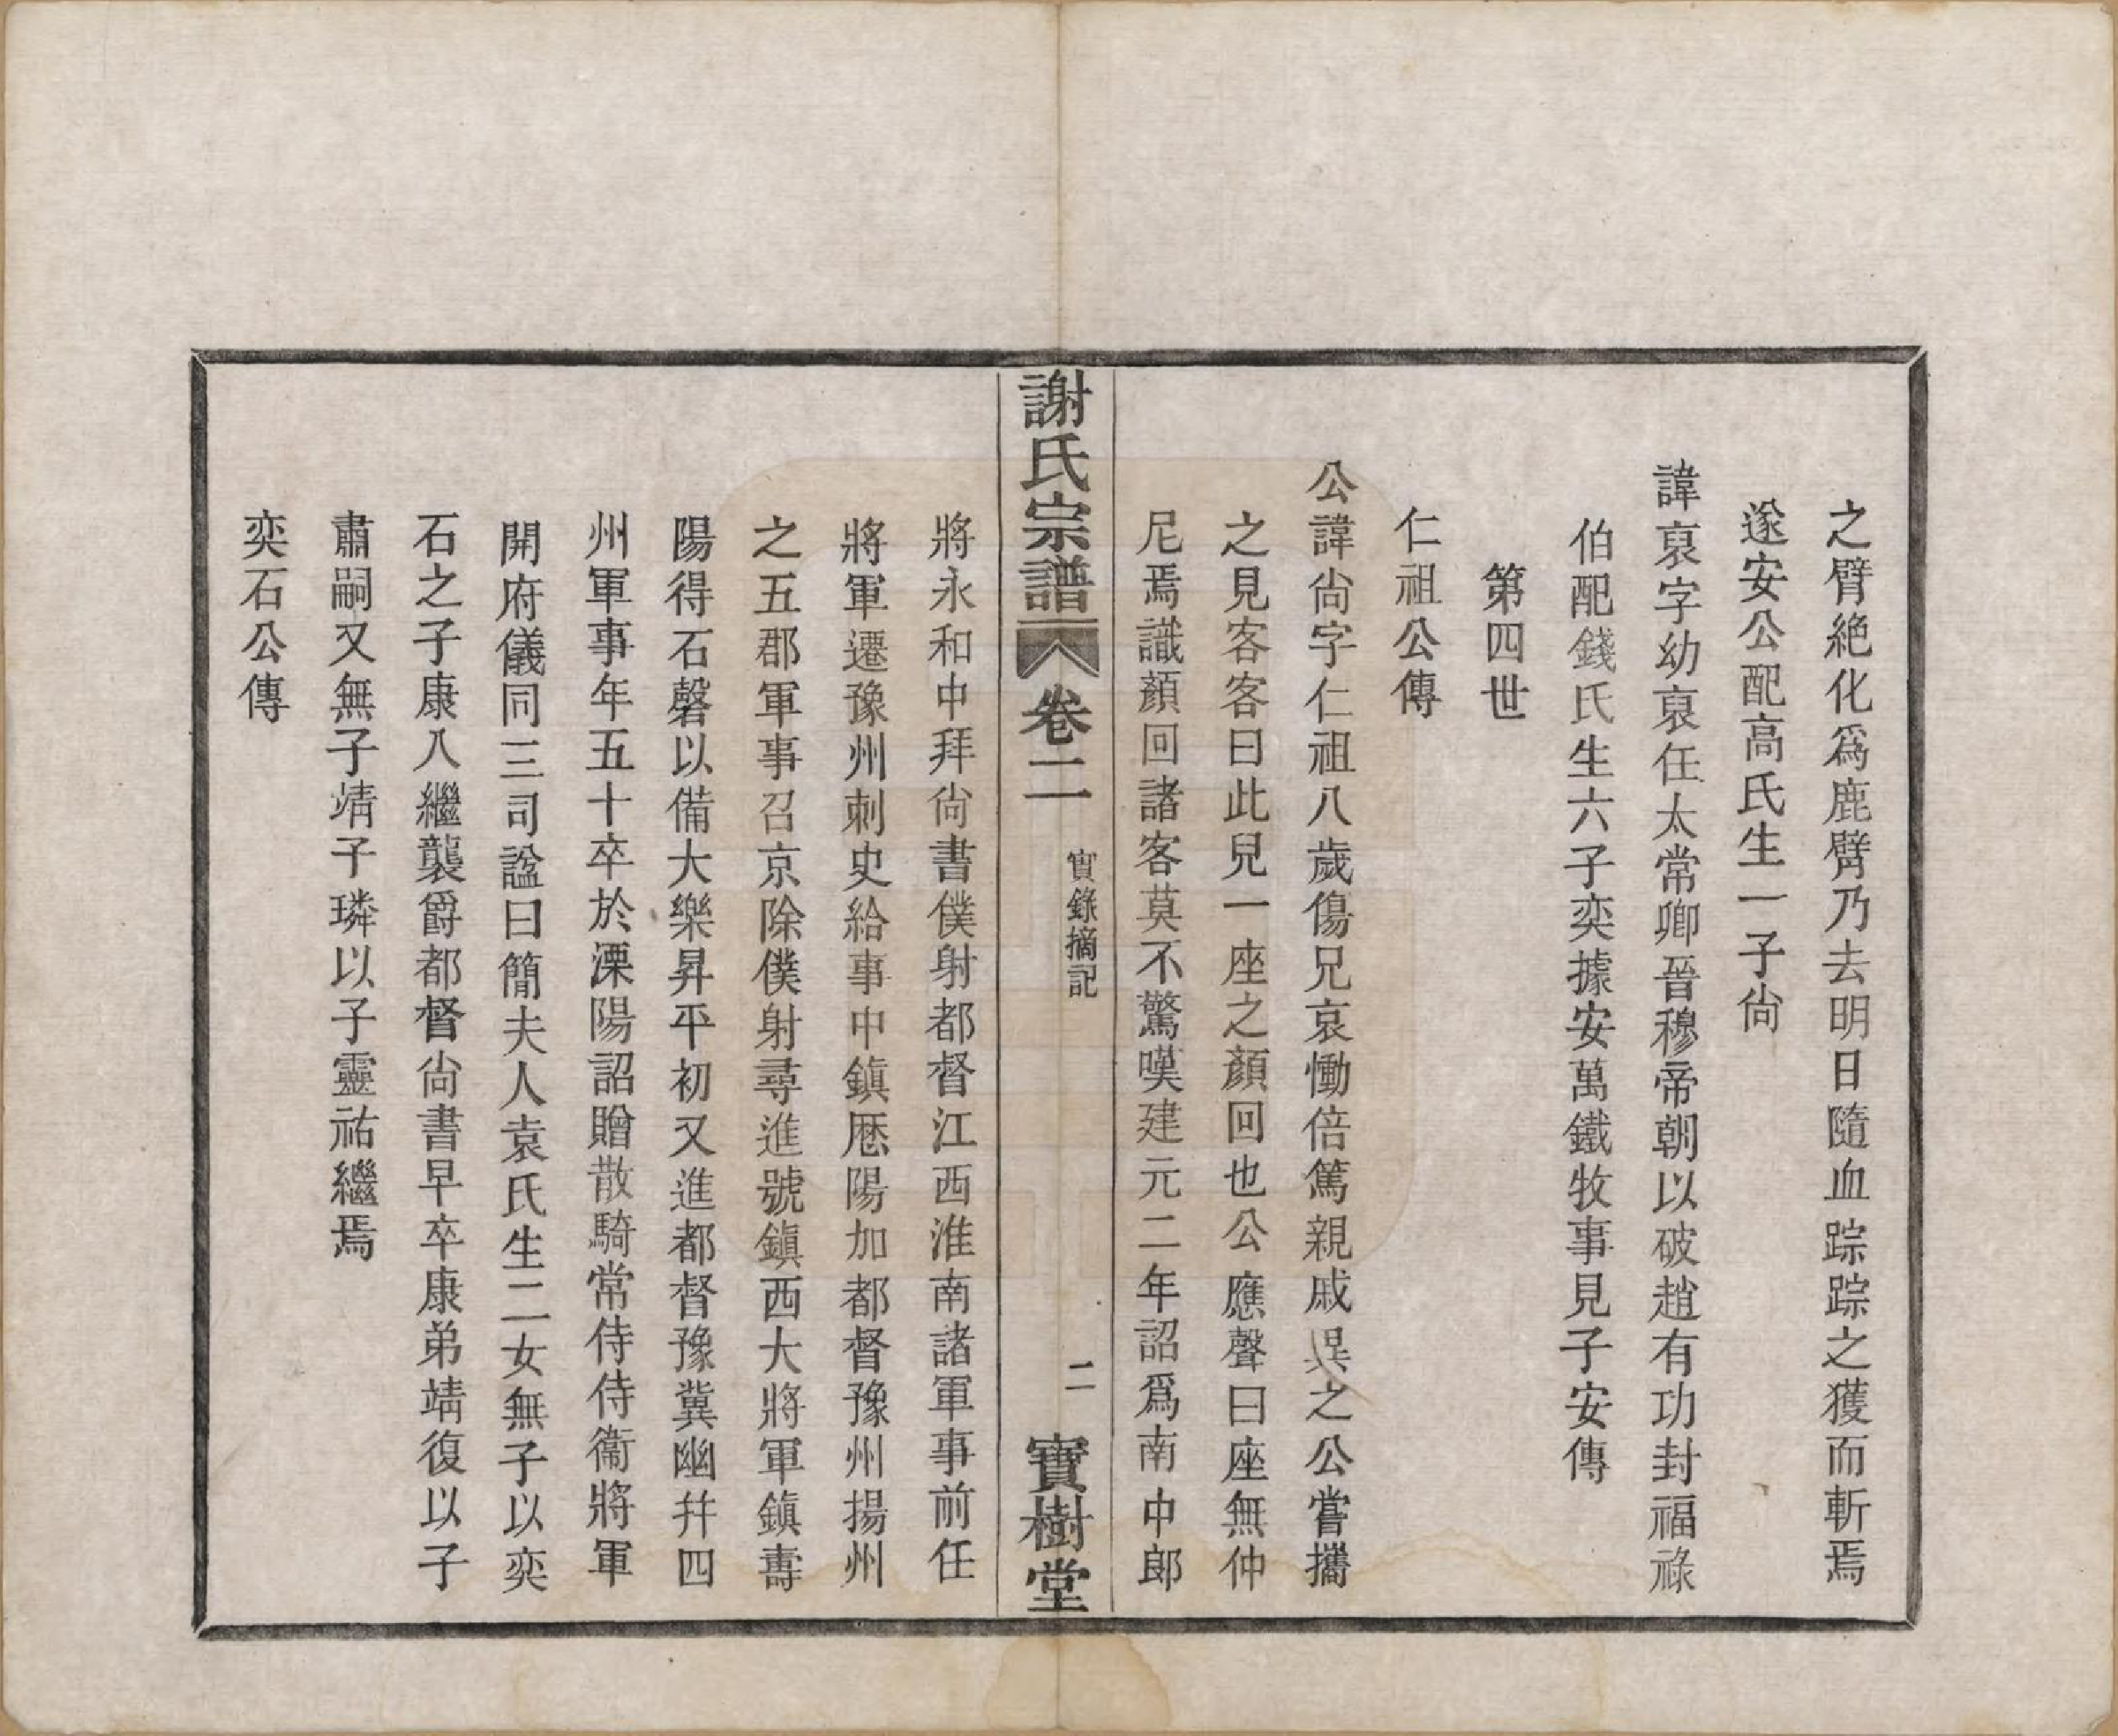 之臂絶化爲鹿臂乃去明日隨血踪踪之獲而斬焉
遂安公配高氏生一子尙
諱裒字幼裒任太常卿晉穆帝朝以破趙有功封福祿
伯配錢氏生六子奕據安萬鐵牧事見子安傳
第四世
仁祖公傳
公諱尙字仁祖八歲傷兄哀慟倍篤親戚異之公嘗攜
之見客客曰此兒一座之顏回也公應聲曰座無仲
尼焉識顏回諸客莫不驚嘆建元二年詔爲南中郎
謝氏宗譜
卷二
實錄摘記
二
寶樹堂
將永和中拜尙書僕射都督江西淮南諸軍事前任
將軍遷豫州刺史給事中鎭厯陽加都督豫州揚州
之五郡軍事召京除僕射尋進號鎭西大將軍鎭壽
陽得石磬以備大樂昇平初又進都督豫冀幽幷四
州軍事年五十卒於溧陽詔贈散騎常侍侍衞將軍
開府儀同三司諡曰簡夫人袁氏生二女無子以奕
石之子康入繼襲爵都督尙書早卒康弟靖復以子
肅嗣又無子靖子璘以子靈祐繼焉
奕石公傳